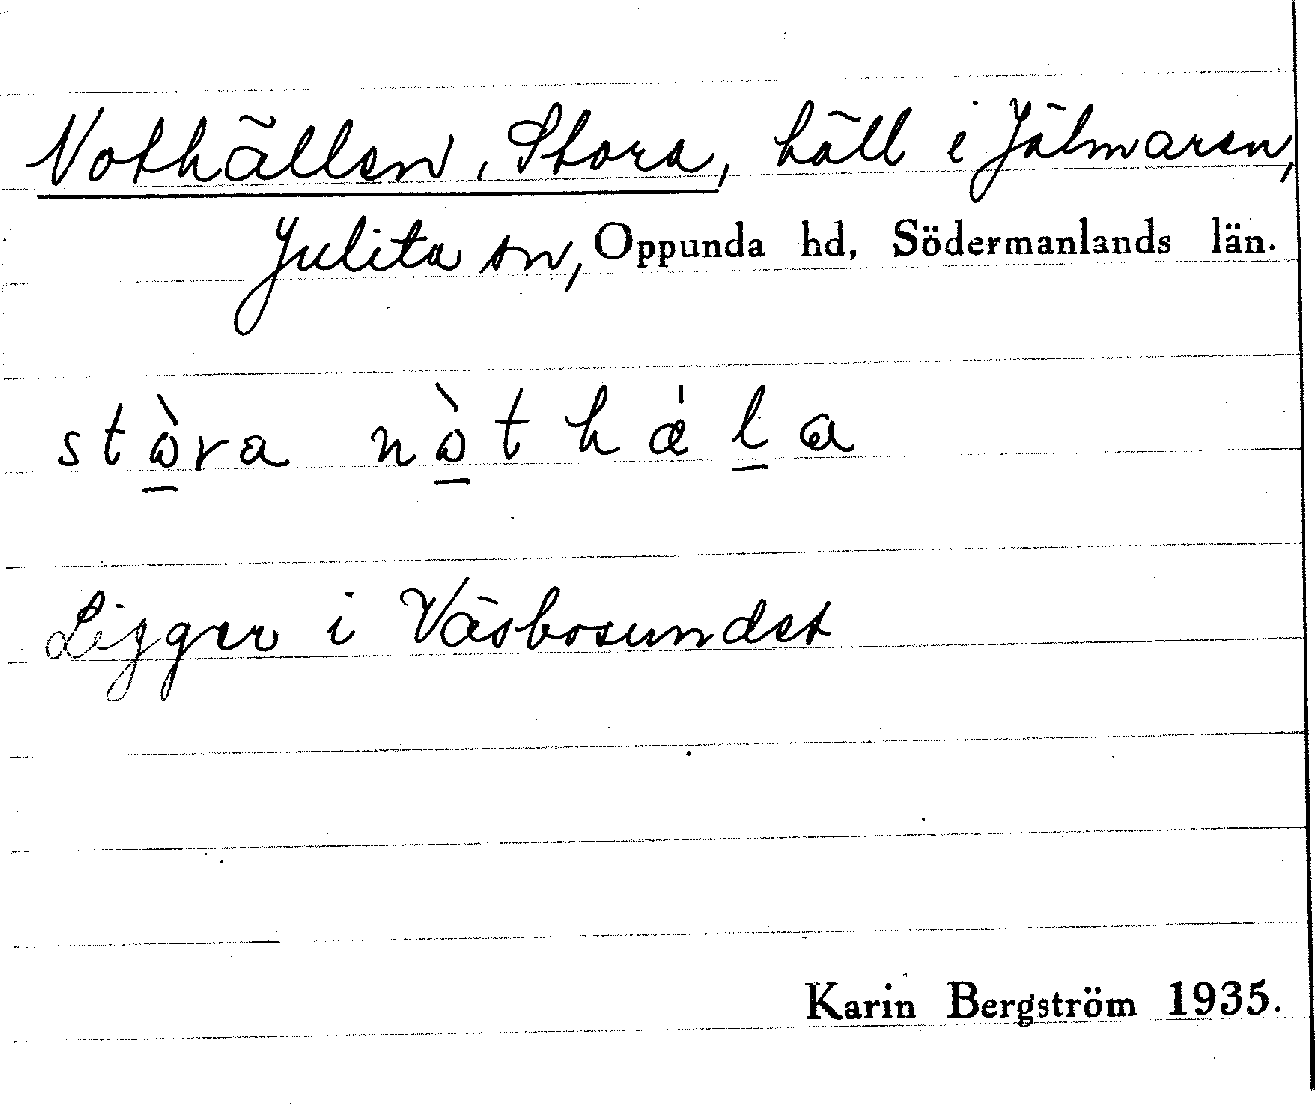 Nothällen, Stora, häll i Jälmaren,
Julita sn, Oppunda hd, Södermanlands län.
stò̲ra nò̲thǽl̲a
Ligger i Väsbosundet
Karin Bergström 1935.